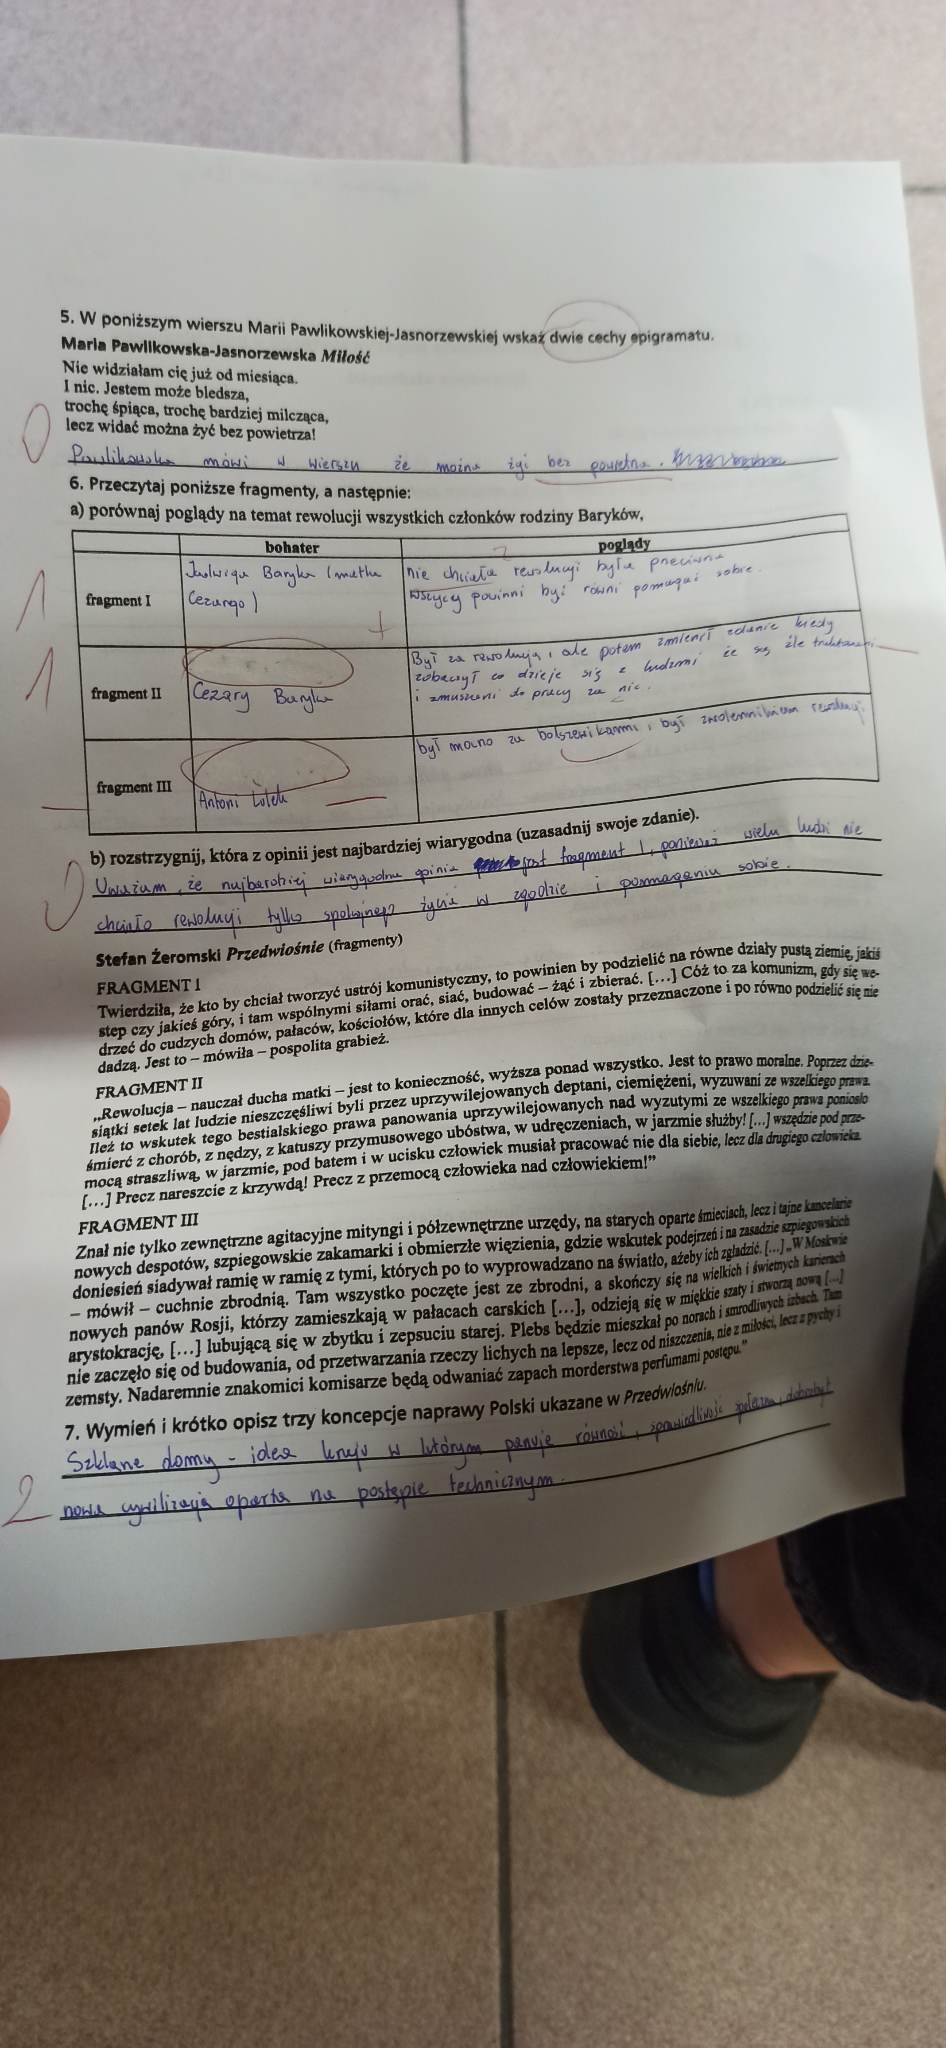 5. W poniższym wierszu Marii Pawlikowskiej-Jasnorzewskiej wskaż dwie cechy epigramatu.
Maria Pawlikowska-Jasnorzewska Miłość
Nie widziałam cię już od miesiąca.
I nic. Jestem może bledsza,
trochę śpiąca, trochę bardziej milcząca,
lecz widać można żyć bez powietrza!
0
Pawlikowska mówi w wierszu że można żyć bez powietrza.
6. Przeczytaj poniższe fragmenty, a następnie:
a) porównaj poglądy na temat rewolucji wszystkich członków rodziny Baryków,
bohater poglądy
1
fragment I
Jadwiga Baryka (matka
Cezarego)
nie chciała rewolucji była przeciwna
wszyscy powinni być równi pomagać sobie.
1
fragment II
Cezary Baryka
Był za rewolucją, ale potem zmienił zdanie kiedy
zobaczył co dzieje się z ludźmi że są źle traktowani
i zmuszani do pracy za nic.
fragment III
Antoni Lulek
był mocno za bolszewikami, był zwolennikiem rewolucji
b) rozstrzygnij, która z opinii jest najbardziej wiarygodna (uzasadnij swoje zdanie).
0
Uważam, że najbardziej wiarygodna opinia jest fragment I, ponieważ wielu ludzi nie
chciało rewolucji tylko spokojnego życia w zgodzie i pomaganiu sobie.
Stefan Żeromski Przedwiośnie (fragmenty)
FRAGMENT I
Twierdziła, że kto by chciał tworzyć ustrój komunistyczny, to powinien by podzielić na równe działy pustą ziemię, jakiś
step czy jakieś góry, i tam wspólnymi siłami orać, siać, budować – żąć i zbierać. […] Cóż to za komunizm, gdy się we-
drzeć do cudzych domów, pałaców, kościołów, które dla innych celów zostały przeznaczone i po równo podzielić się nie
dadzą. Jest to – mówiła – pospolita grabież.
FRAGMENT II
„Rewolucja – nauczał ducha matki – jest to konieczność, wyższa ponad wszystko. Jest to prawo moralne. Poprzez dzie-
siątki setek lat ludzie nieszczęśliwi byli przez uprzywilejowanych deptani, ciemiężeni, wyzuwani ze wszelkiego prawa.
Ileż to wskutek tego bestialskiego prawa panowania uprzywilejowanych nad wyzutymi ze wszelkiego prawa poniosło
śmierć z chorób, z nędzy, z katuszy przymusowego ubóstwa, w udręczeniach, w jarzmie służby! […] wszędzie pod prze-
mocą straszliwą, w jarzmie, pod batem i w ucisku człowiek musiał pracować nie dla siebie, lecz dla drugiego człowieka.
[…] Precz nareszcie z krzywdą! Precz z przemocą człowieka nad człowiekiem!”
FRAGMENT III
Znał nie tylko zewnętrzne agitacyjne mityngi i półzewnętrzne urzędy, na starych oparte śmieciach, lecz i tajne kancelarie
nowych despotów, szpiegowskie zakamarki i obmierzłe więzienia, gdzie wskutek podejrzeń i na zasadzie szpiegowskich
doniesień siadywał ramię w ramię z tymi, których po to wyprowadzano na światło, ażeby ich zgładzić. […] „W Moskwie
– mówił – cuchnie zbrodnią. Tam wszystko poczęte jest ze zbrodni, a skończy się na wielkich i świetnych karierach
nowych panów Rosji, którzy zamieszkają w pałacach carskich […], odzieją się w miękkie szaty i stworzą nową […]
arystokrację, […] lubującą się w zbytku i zepsuciu starej. Plebs będzie mieszkał po norach i smrodliwych izbach. Tam
nie zaczęło się od budowania, od przetwarzania rzeczy lichych na lepsze, lecz od niszczenia, nie z miłości, lecz z pychy i
zemsty. Nadaremnie znakomici komisarze będą odwaniać zapach morderstwa perfumami postępu.”
7. Wymień i krótko opisz trzy koncepcje naprawy Polski ukazane w Przedwiośniu.
Szklane domy - idea kraju w którym panuje równość, sprawiedliwość społeczna, dobrobyt
2
nowa cywilizacja oparta na postępie technicznym.